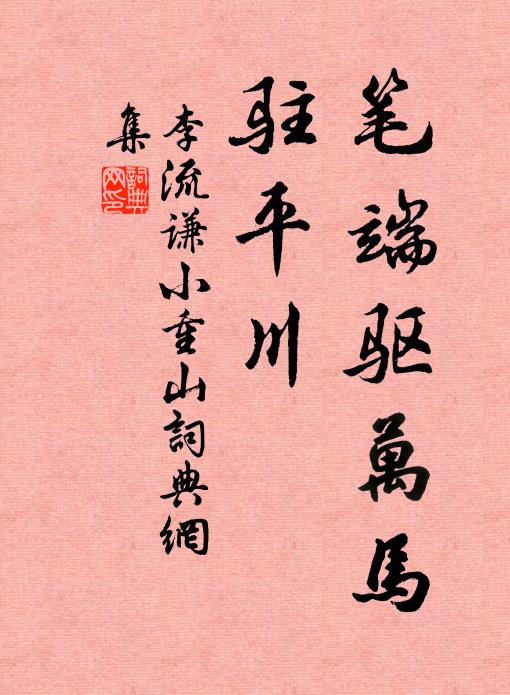 笔端驱萬馬
驻平川
李流谦小重山詞典網
集
詞典
网印